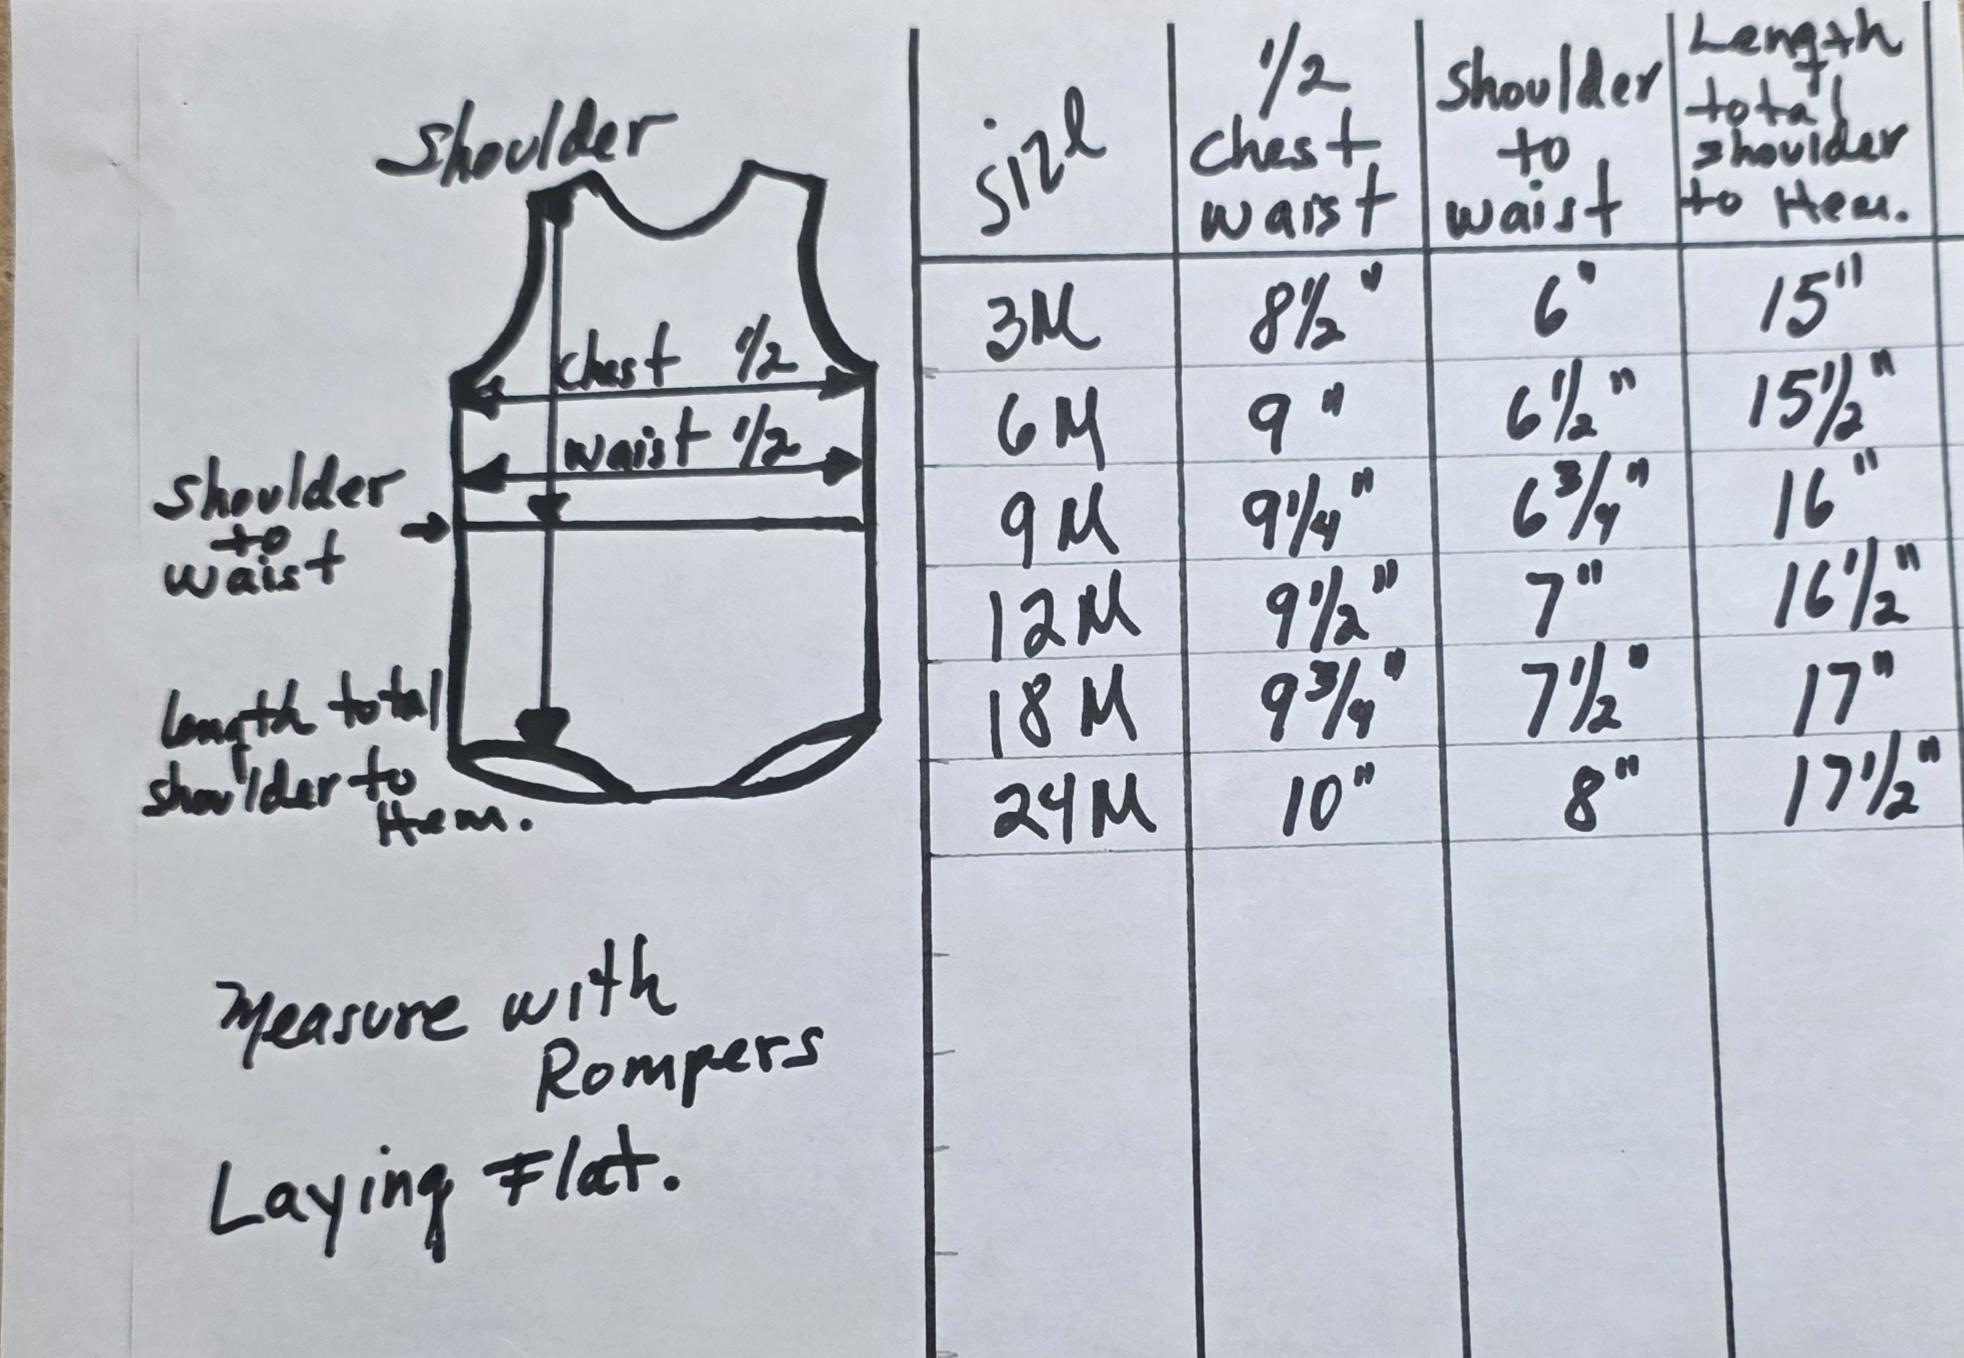 Shoulder
Chest 1/2
waist 1/2
Shoulder
to
waist
Length total
shoulder to
Hem.
Measure with
Rompers
Laying Flat.
Size
1/2
Chest
waist
Shoulder
to
waist
Length
total
shoulder
to Hem.
3M 8 1/2" 6" 15"
6M 9" 6 1/2" 15 1/2"
9M 9 1/4" 6 3/4" 16"
12M 9 1/2" 7" 16 1/2"
18M 9 3/4" 7 1/2" 17"
24M 10" 8" 17 1/2"